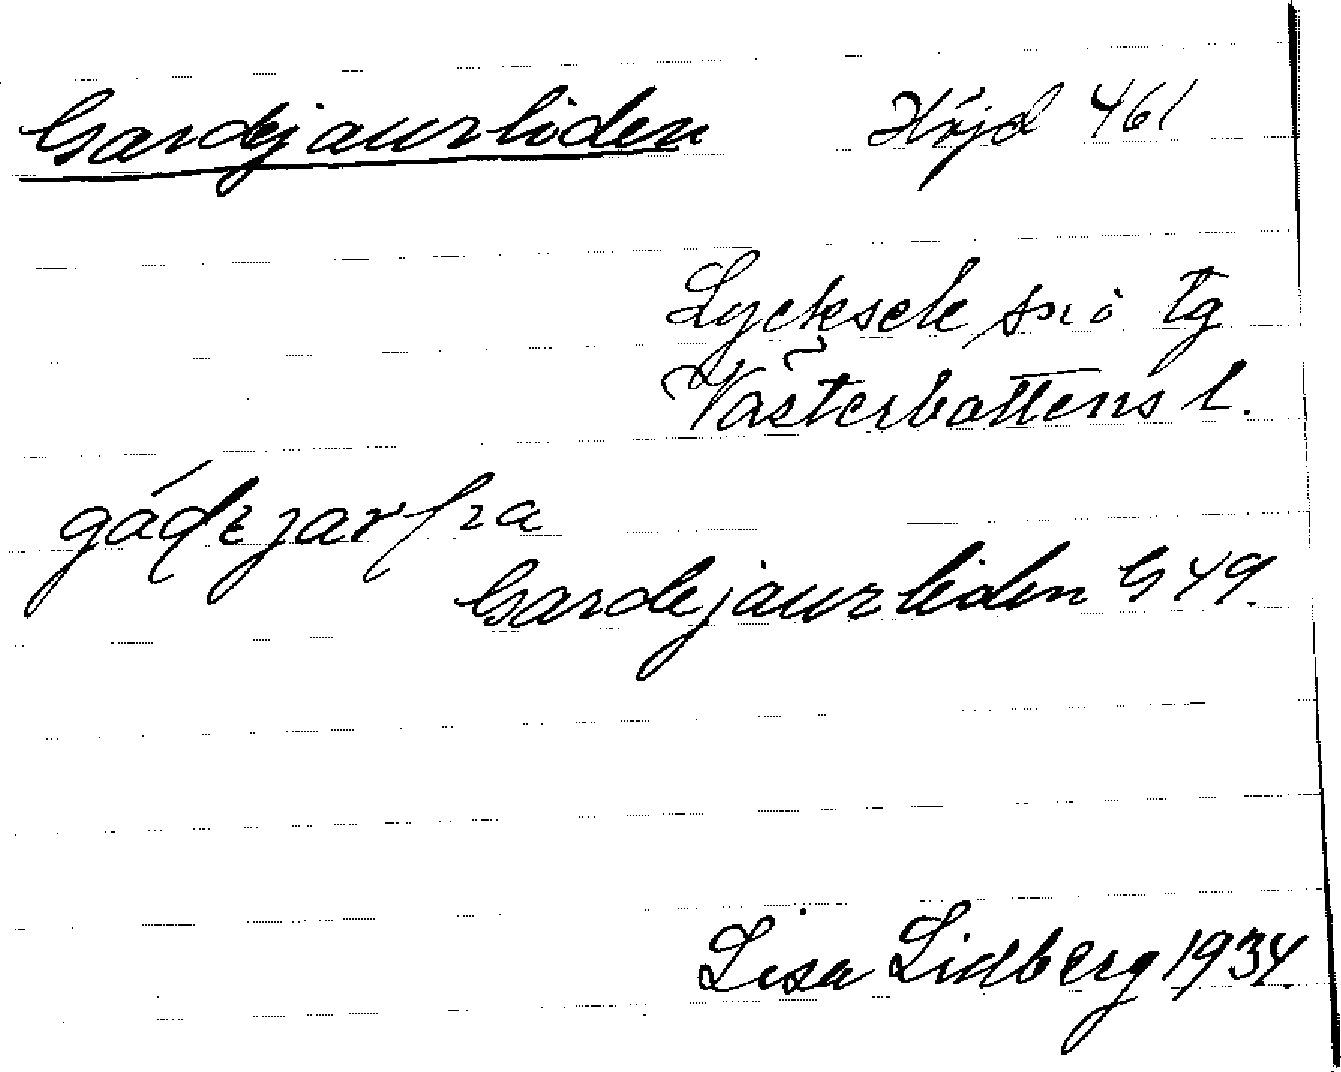 Gardejaurliden Höjd 461
Lycksele sn
Västerbottens l.
Gardejaurliden G 49.
Lisa Lidberg 1934.